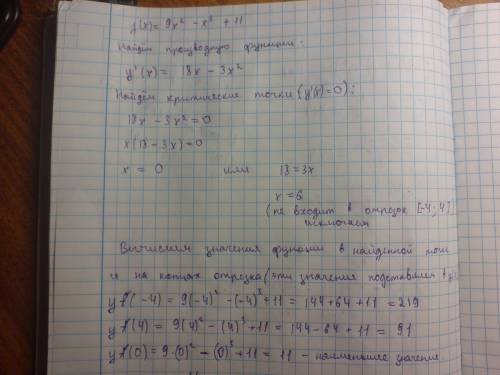 y(x) = 9x² - x³ + 11
Найдём производную функции:
y'(x) = 18x - 3x²
Найдём критические точки (y'(x)=0):
18x - 3x² = 0
x(18 - 3x) = 0
x = 0 или 18 = 3x
x = 6
(не входит в отрезок [-4; 4]
исключаем
Вычислим значения функции в найденной
и на концах отрезка (эти значения подставляем в
y(-4) = 9(-4)² - (-4)³ + 11 = 144 + 64 + 11 = 219
y(4) = 9(4)² - (4)³ + 11 = 144 - 64 + 11 = 91
y(0) = 9·(0)² - (0)³ + 11 = 11 - наименьшее значение